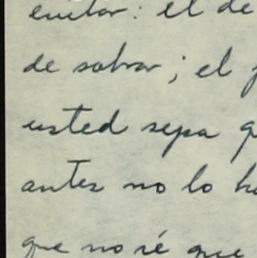 evitar: el de
de sobra; el
usted sepa q
antes no lo h
que no sé que